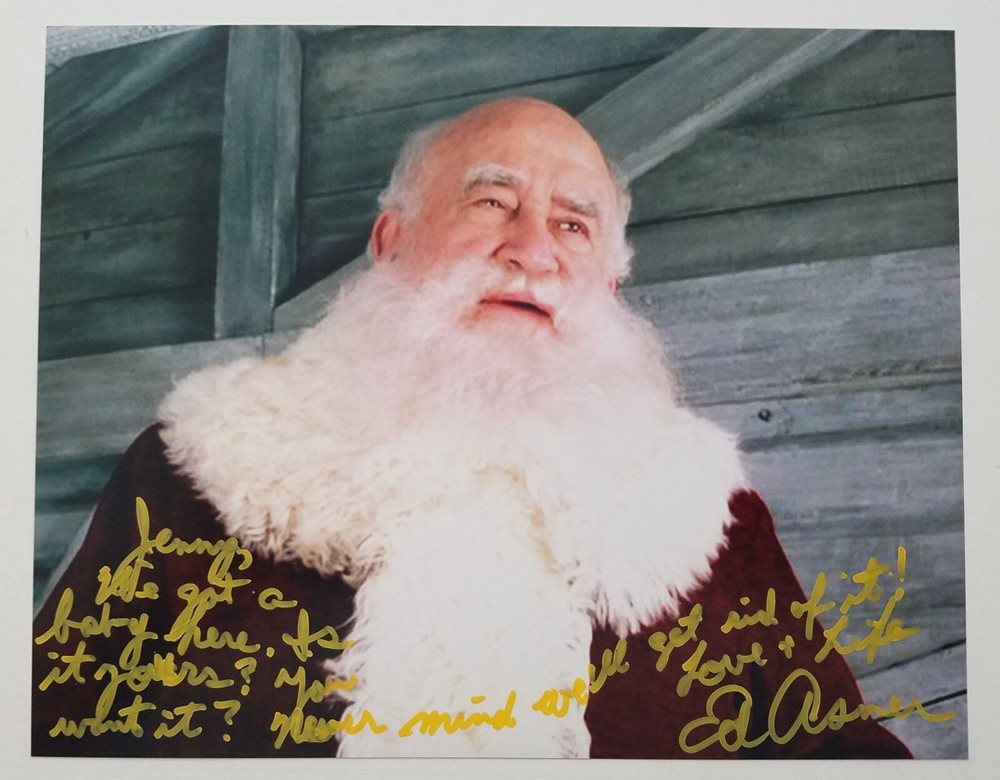 Jenny,
We got a
baby here. Is
it yours? You
want it? Never mind we'll get rid of it!
Love + Life
Ed Asner